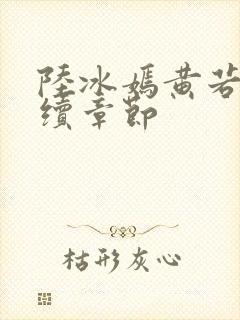 陸冰嫣黄若
續章節
枯形灰心